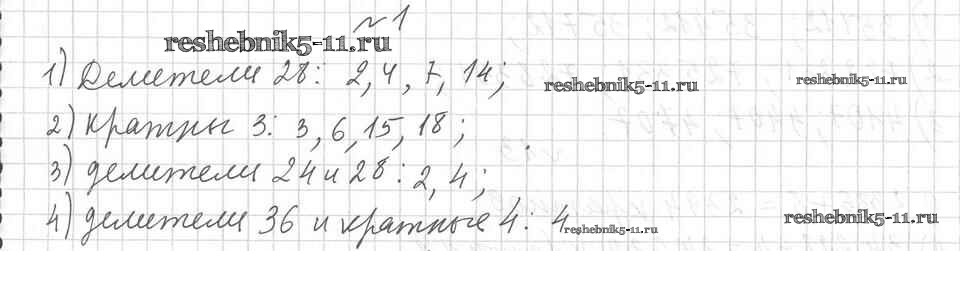 № 1
reshebnik5-11.ru
1) Делители 28: 2, 4, 7, 14;
reshebnik5-11.ru
reshebnik5-11.ru
2) кратны 3: 3, 6, 15, 18;
3) делители 24 и 28: 2, 4;
4) делители 36 и кратные 4: 4
reshebnik5-11.ru
reshebnik5-11.ru